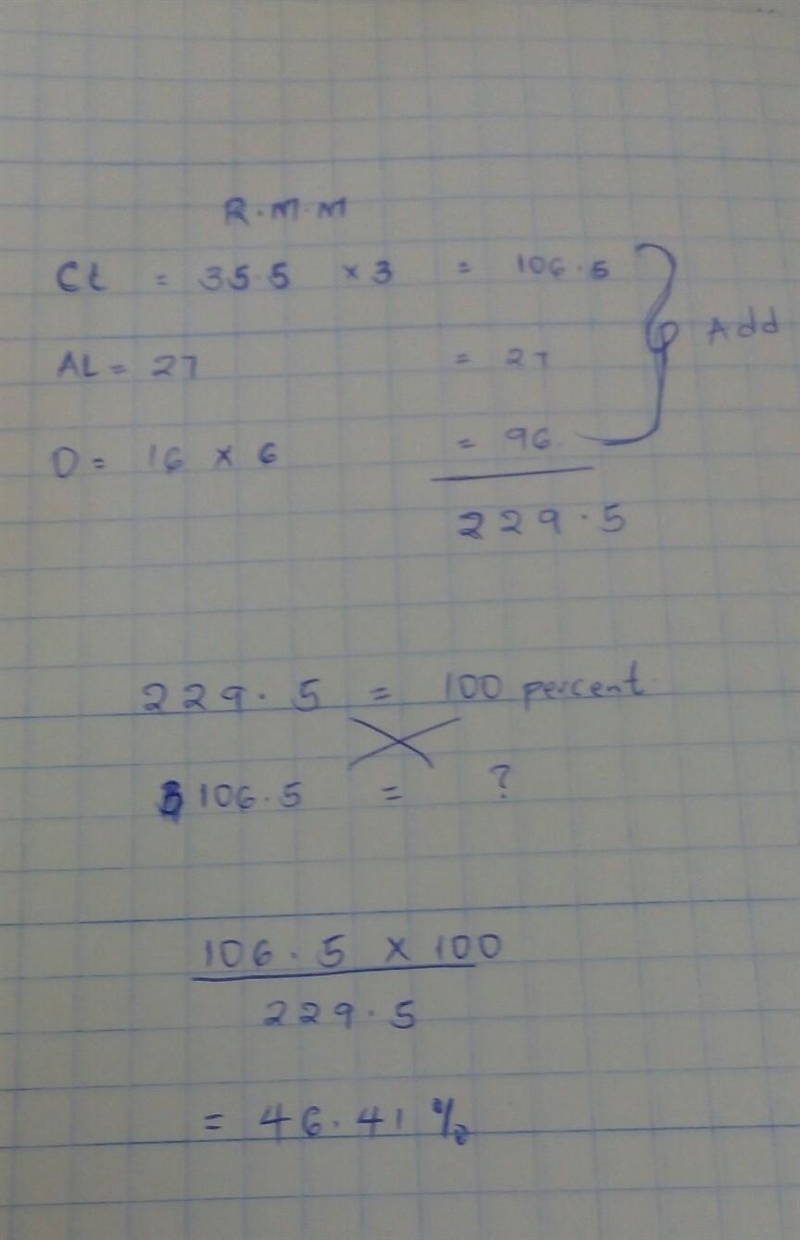 R.M.M
Cl = 35.5 × 3 = 106.5
Al = 27 = 27
Add
O = 16 × 6 = 96
229.5
229.5 = 100 percent
106.5 = ?
106.5 × 100
229.5
= 46.41 %